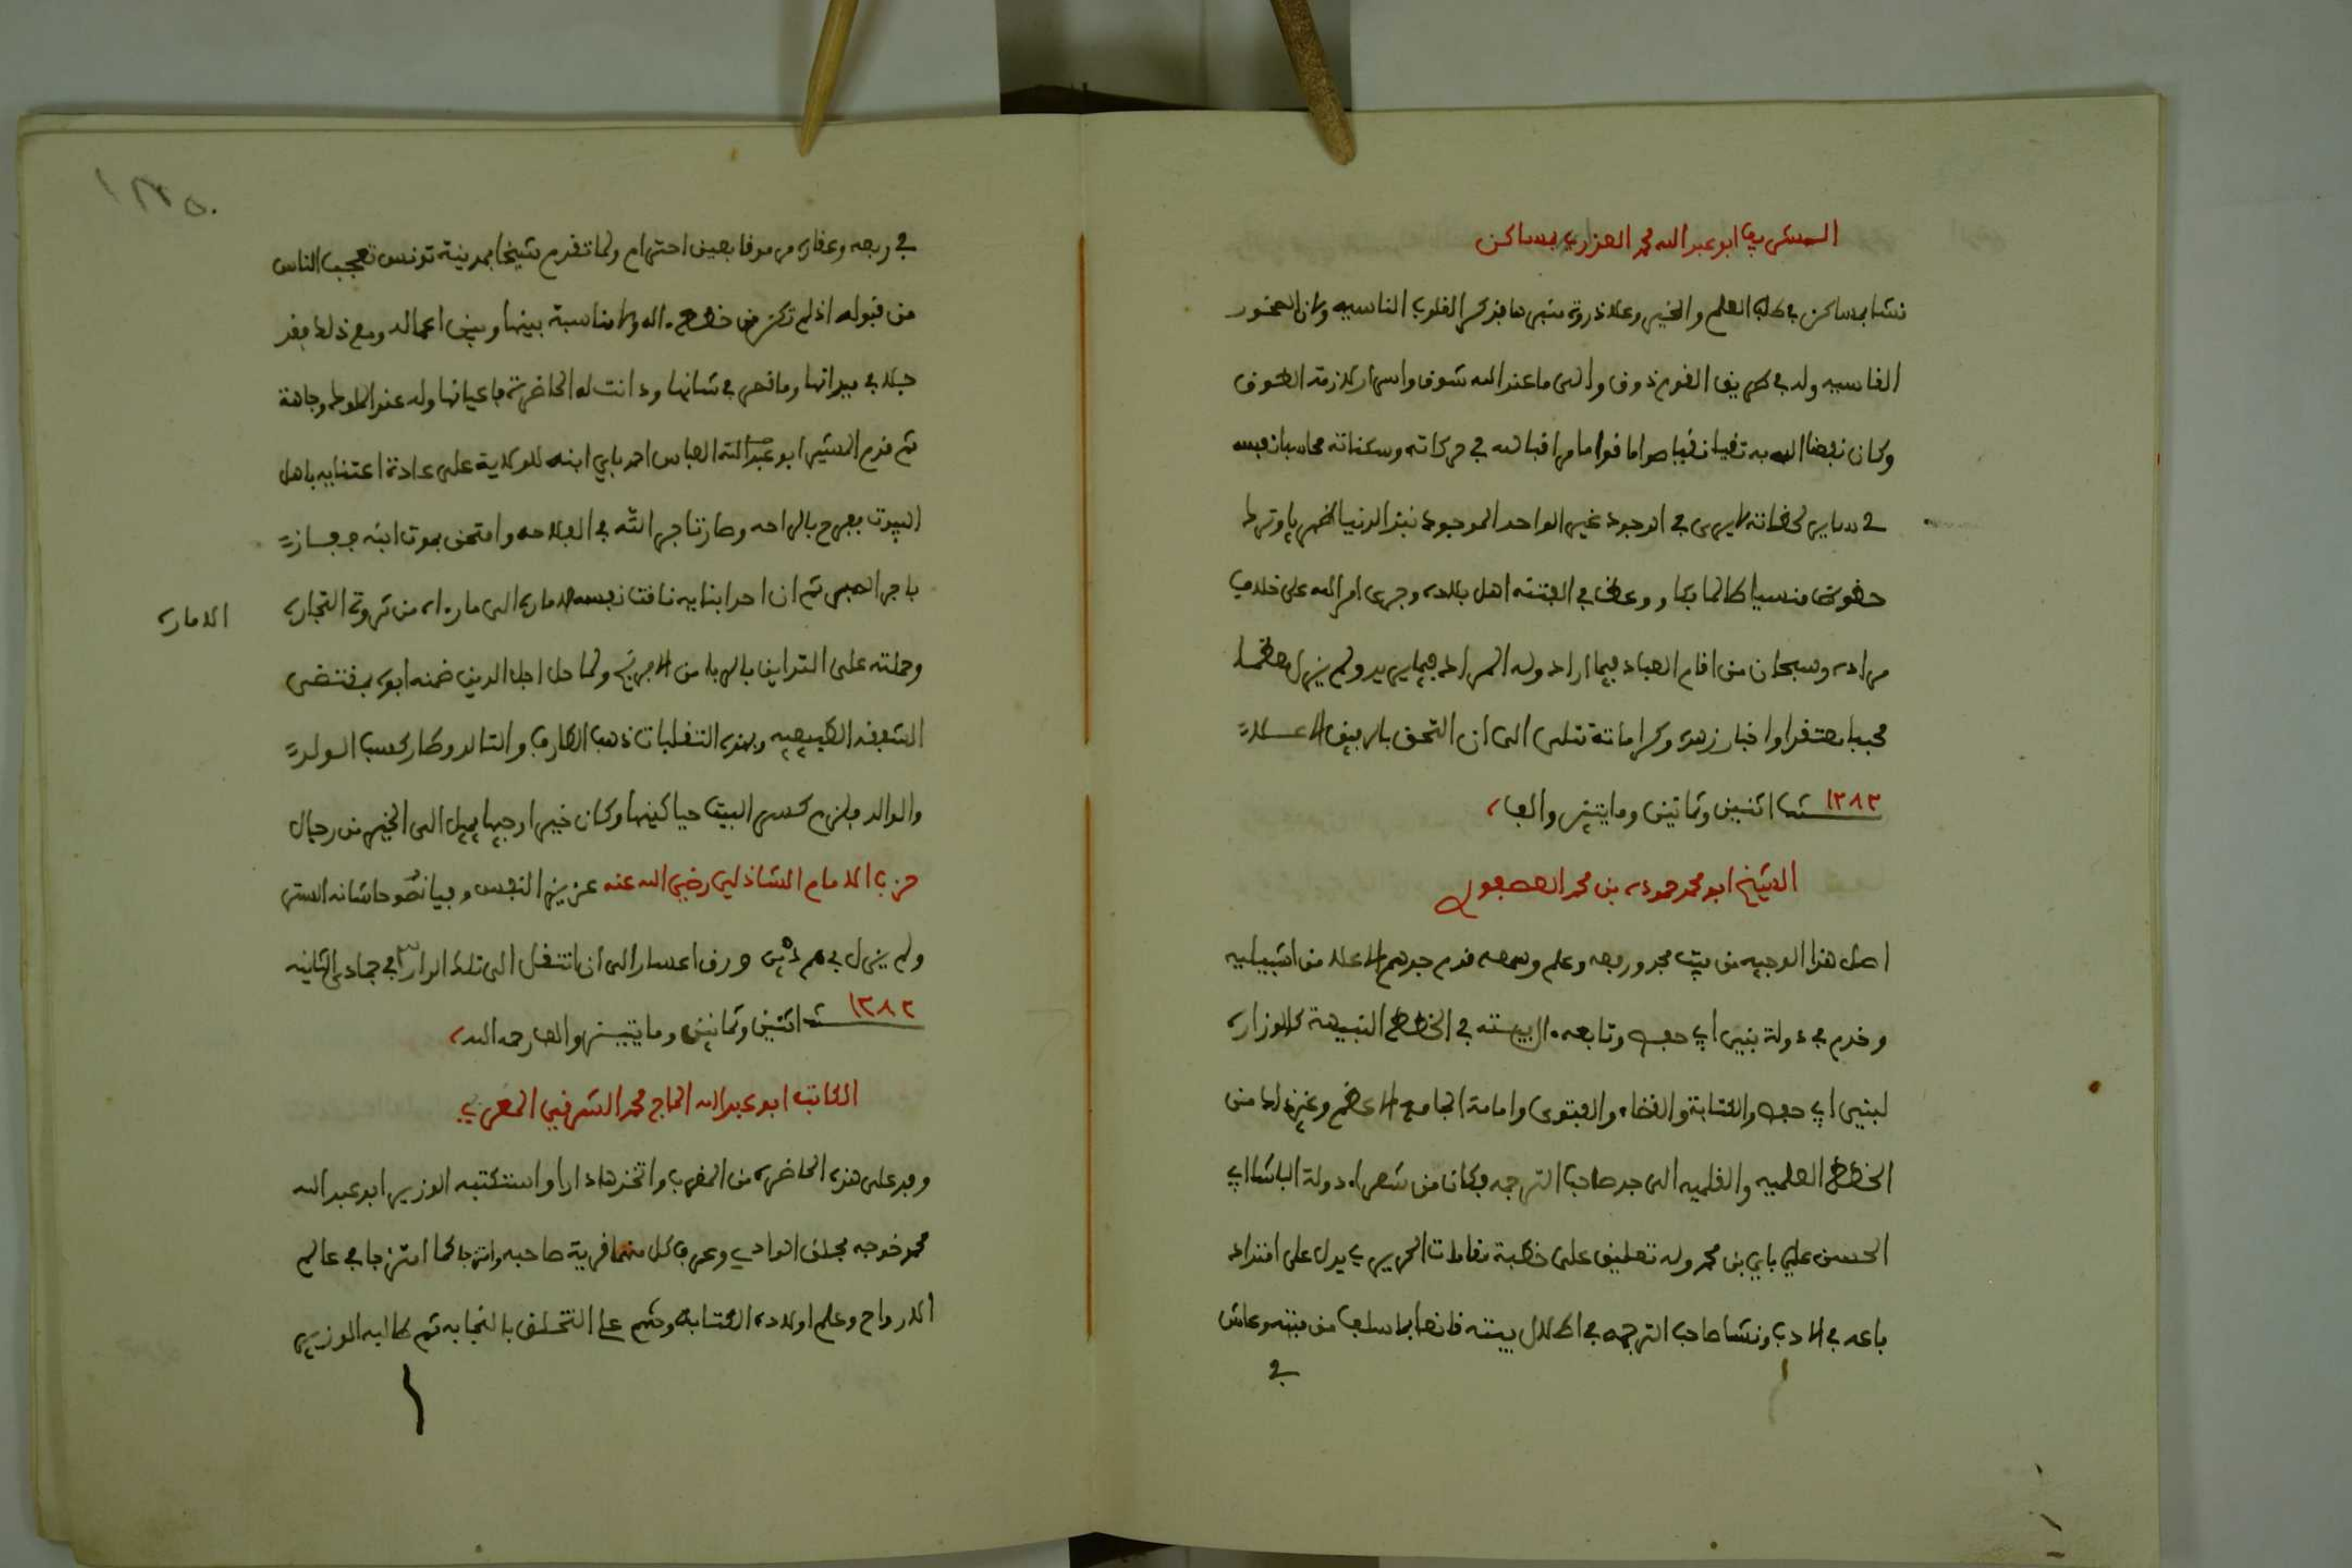 الشريف ابو عبد الله محمد العزري بمساكن
نشا بمساكن في طلب العلم والخير وعلا ذروة منبرها فذكر القلوب الناسيه والان الصخور
القاسيه وله في طريق القوم ذوق والى ما عند الله شوق واسرار لازمة الطوق
وكان نفعنا الله به تقيا نقيا صواما قواما مراقبا لله في حركاته وسكناته محاسبا نفسه
في ساير لحظاته لا يرى في الوجود غير الواحد الموجود نبذ الدنيا ظهريا وترك
حظوظها منسيا طالما وعظ في الفتنه اهل بلده وجرى امر الله على خلاف
مراده وسبحان من اقام العباد فيما اراد وله المراد فيما يريد ولم يزل معظما
محببا معتقدا واخبار زهده وكراماته تتلى الى ان التحق بالرفيق الاعلى
١٢٨٢ سنة اثنين وثمانين ومايتين والف
الشيخ ابو محمد حموده بن محمد العصفوري
اصل هذا الوجيه من بيت مجد ورفعه وعلم وسمعه قدم جدهم الاعلا من اشبيليه
وخدم في دولة بني ابي حفص وتابعه ال بيته في الخطط النبيهة كالوزاره
لبني ابي حفص والكتابة والقضاء والفتوى وامامة الجامع الاعظم وغير ذلك من
الخطط العلميه والقلميه الى جد صاحب الترجمه فكان من شعراء دولة الباشا ابي
الحسن علي باي بن محمد وله تعليق على خطبة مقامات الحريري يدل على امتداد
باعه في الادب ونشا صاحب الترجمه في اطلال بيته قانعا بما سلف من مبيته وعاش
في
١٢٥٠
في رفعه وعفاف مرموقا بعين احترام ولما تقدم شيخا بمدينة تونس تعجب الناس
من قبوله اذ لم تكن من خطط اله ولا مناسبة بينها وبين اعماله ومع ذلك فقد
جلا في ميدانها وما قصر في شانها ودانت له الحاضرة باعيانها وله عند الملوك وجاهة
ثم قدم المشير ابو العباس احمد باي ابنه للوكلاية على عادة اعتنايه باهل
البيوت ففرح بالراحه وصار تاجر الله في الفلاحه وامتحن بموت ابنه ففاز
باجر الصبر ثم ان احد ابنايه تاقت نفسه الامارة الى ما راه من ثروة التجاره
الاماره
وحملته على التداين بالربا من الافرنج ولما حل اجل الدين ضمنه ابوه بمقتضى
الشفقه الطبيعيه وبهذه التقلبات ذهب الطارف والتالد وطار كسب الولد
والوالد فلزم كسر البيت حيا كميت وكان خيرا وجيها يميل الى الخير من رجال
حزب الامام الشاذلي رضي الله عنه عزيز النفس وفيا نصوحا شانه الستر
ولم يزل في هم دين ورق اعسار الى ان انتقل الى تلك الدار في جمادى الثانيه
١٢٨٢ سنة اثنين وثمانين ومايتين والف رحمه الله
الكاتب ابو عبد الله الحاج محمد الشرفي المغربي
وفد على هذه الحاضرة من المغرب واتخذها دارا واستكتبه الوزير ابو عبد الله
محمد خوجه بحلق الوادي وعرف كل منهما قرية صاحبه وامتزجا كما امتزجا في عالم
الارواح وعلم اولاده الكتابة وحثهم على التخلق بالنجابه ثم طالبه الوزير